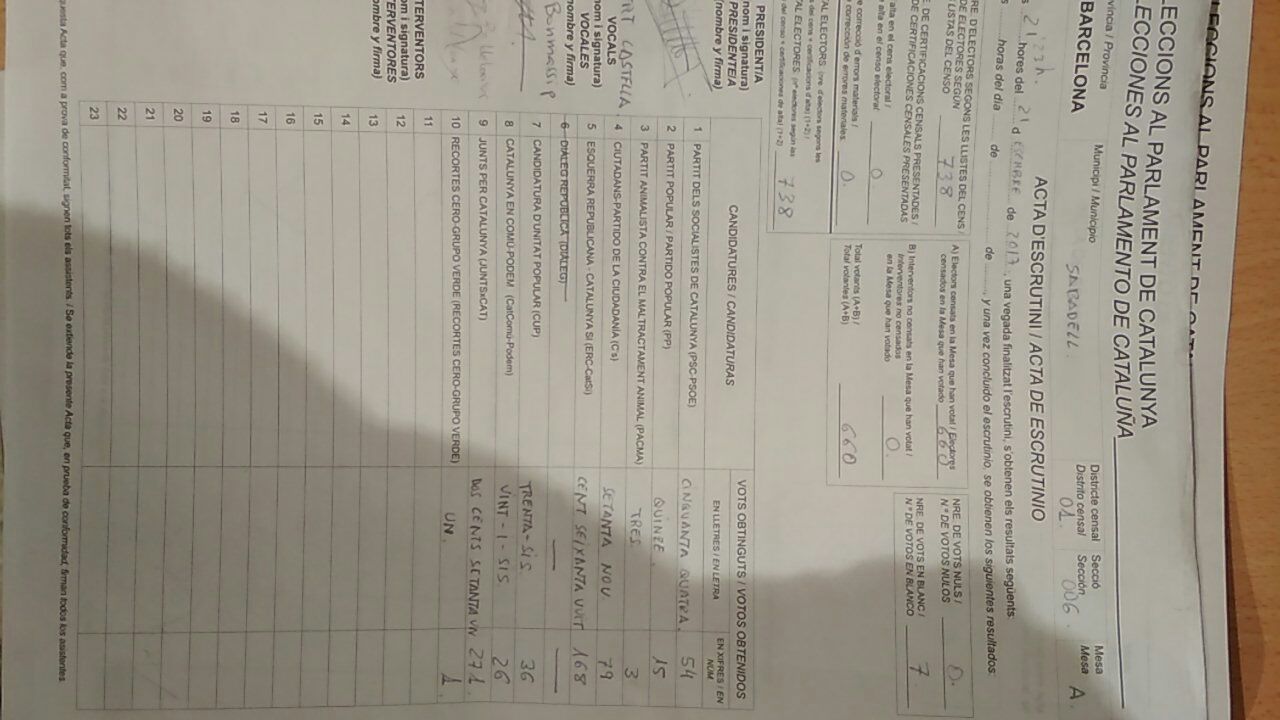 LECCIONS AL PARLAMENT DE CATALUNYA
LECCIONES AL PARLAMENTO DE CATALUÑA
víncia / Provincia
BARCELONA
Municipi / Municipio
SABADELL.
Districte censal
Distrito censal
01.
Secció
Sección
006.
Mesa
Mesa
A.
ACTA D'ESCRUTINI / ACTA DE ESCRUTINIO
s 21'23h. hores del 21 d de 2017, una vegada finalitzat l'escrutini, s'obtenen els resultats següents:
s horas del día de de , y una vez concluido el escrutinio, se obtienen los siguientes resultados:
RE. D'ELECTORS SEGONS LES LLISTES DEL CENS /
DE ELECTORES SEGÚN
LISTAS DEL CENSO
738
E. DE CERTIFICACIONS CENSALS PRESENTADES /
DE CERTIFICACIONES CENSALES PRESENTADAS
alta en el cens electoral /
alta en el censo electoral
0
e correcció d'errors materials /
corrección de errores materiales:
0.
AL ELECTORS. (nre. d'electors segons les
s del cens + certificacions d'alta) (1+2) /
AL ELECTORES. (nº electores según las
del censo + certificaciones de alta) (1+2)
738
A) Electors censats en la Mesa que han votat / Electores
censados en la Mesa que han votado
660
B) Interventors no censats en la Mesa que han votat /
Interventores no censados
en la Mesa que han votado
0.
Total votants (A+B) /
Total votantes (A+B)
660
NRE. DE VOTS NULS /
N.º DE VOTOS NULOS
0.
NRE. DE VOTS EN BLANC /
N.º DE VOTOS EN BLANCO
7
CANDIDATURES / CANDIDATURAS
VOTS OBTINGUTS / VOTOS OBTENIDOS
EN LLETRES / EN LETRA
EN XIFRES / EN NÚM
1 PARTIT DELS SOCIALISTES DE CATALUNYA (PSC-PSOE) CINQUANTA QUATRA. 54
2 PARTIT POPULAR / PARTIDO POPULAR (PP) QUINZE. 15
3 PARTIT ANIMALISTA CONTRA EL MALTRACTAMENT ANIMAL (PACMA) TRES. 3
4 CIUTADANS-PARTIDO DE LA CIUDADANÍA (C's) SETANTA NOU. 79
5 ESQUERRA REPUBLICANA - CATALUNYA SI (ERC-CatSí) CENT SEIXANTA VUIT 168
6 DIÀLEG REPÚBLICA (DIÀLEG)
7 CANDIDATURA D'UNITAT POPULAR (CUP) TRENTA-SIS 36
8 CATALUNYA EN COMÚ-PODEM (CatComú-Podem) VINT-I-SIS. 26
9 JUNTS PER CATALUNYA (JUNTSxCAT) DOS CENTS SETANTA UN 271.
10 RECORTES CERO-GRUPO VERDE (RECORTES CERO-GRUPO VERDE) UN. 1.
11
12
13
14
15
16
17
18
19
20
21
22
23
PRESIDENT/A
(nom i signatura)
PRESIDENTE/A
(nombre y firma)
VOCALS
(nom i signatura)
VOCALES
(nombre y firma)
CASTELLA
TERVENTORS
om i signatura)
TERVENTORES
ombre y firma)
questa Acta que, com a prova de conformitat, signen tots els assistents. / Se extiende la presente Acta que, en prueba de conformidad, firman todos los asistentes.